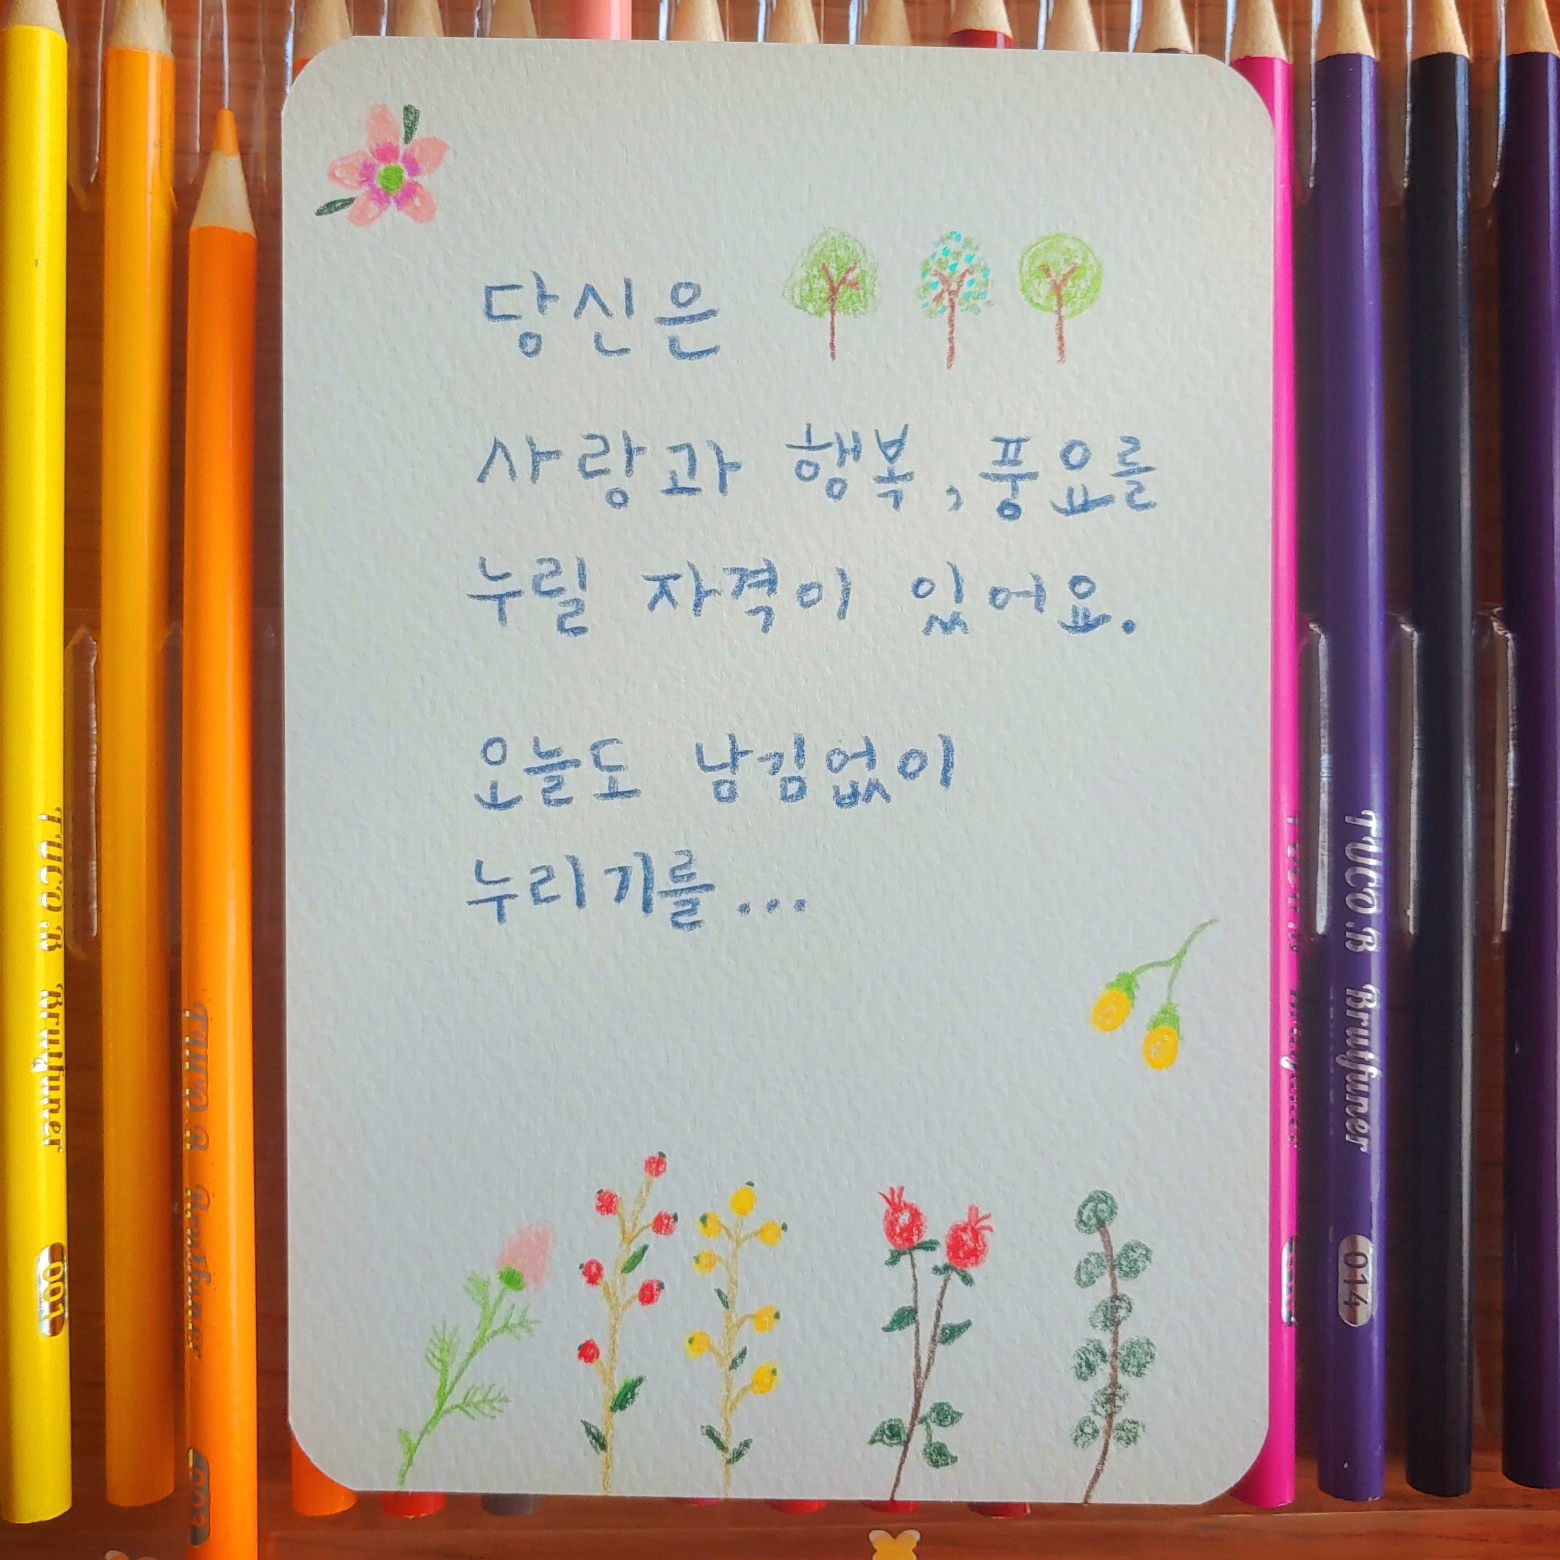 당신은
사랑과 행복, 풍요를
누릴 자격이 있어요.
오늘도 남김없이
누리기를...
TUCO.B Brutfuner 001
Brutfuner
TUCO.B Brutfuner 014